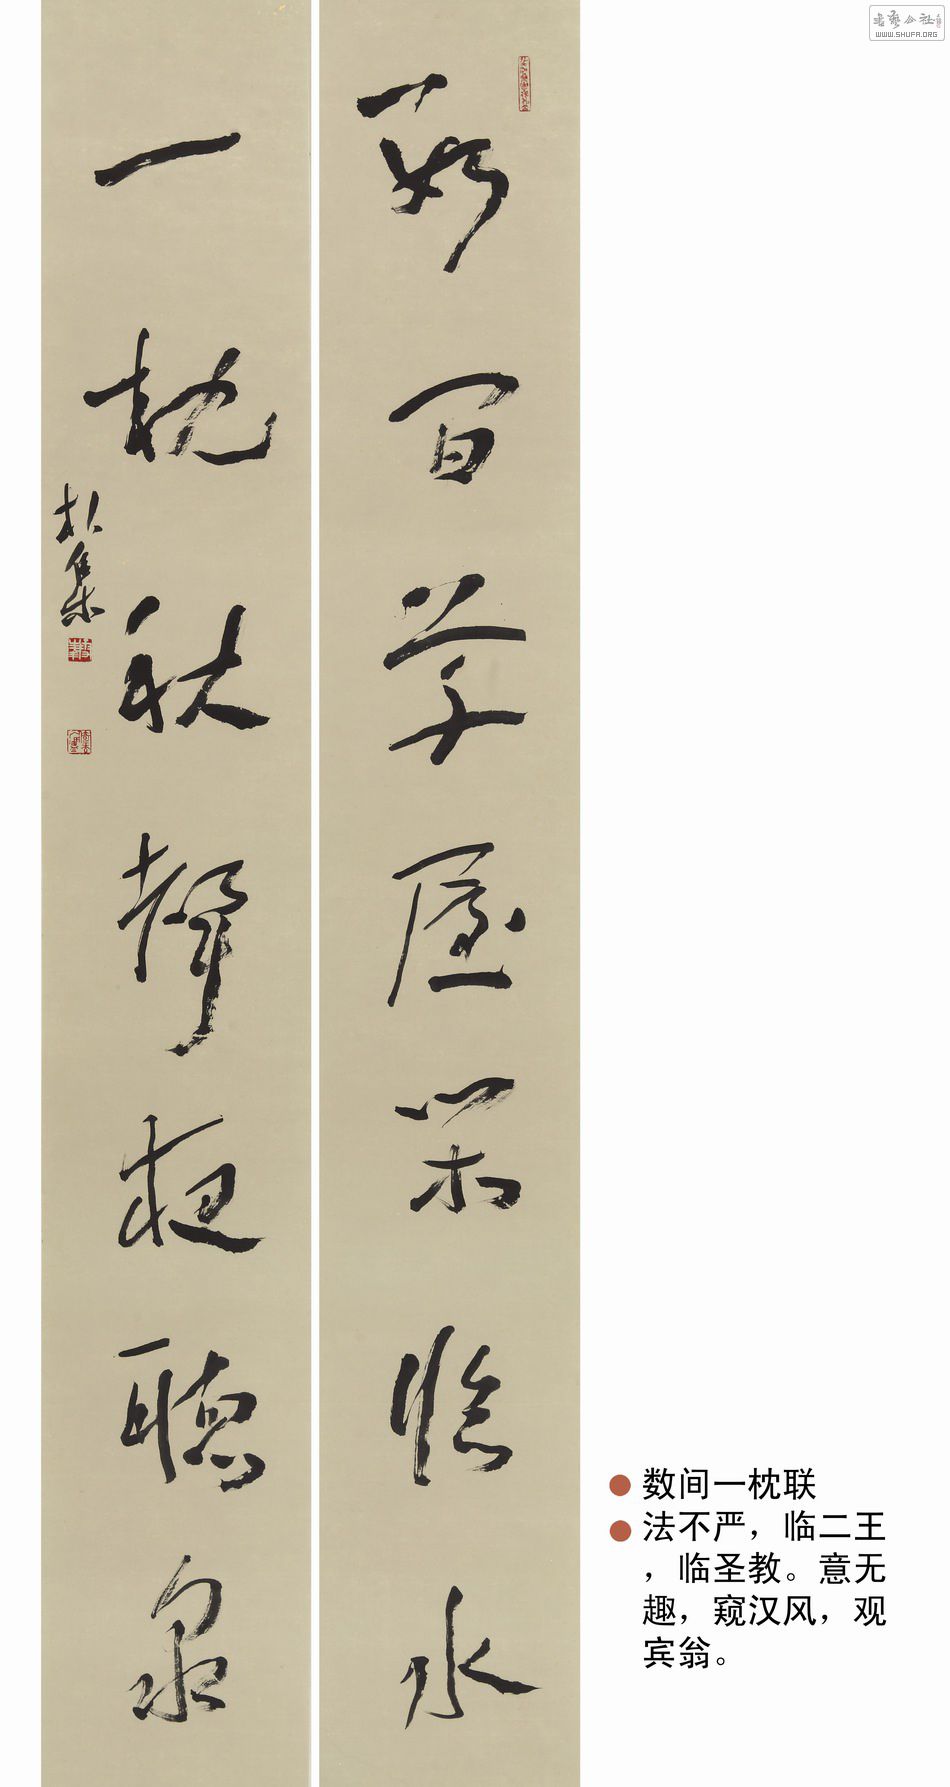 书艺公社
WWW.SHUFA.ORG
數間茅屋閑臨水
一枕秋聲夜聽泉
数间一枕联
法不严，临二王
，临圣教。意无
趣，窥汉风，观
宾翁。